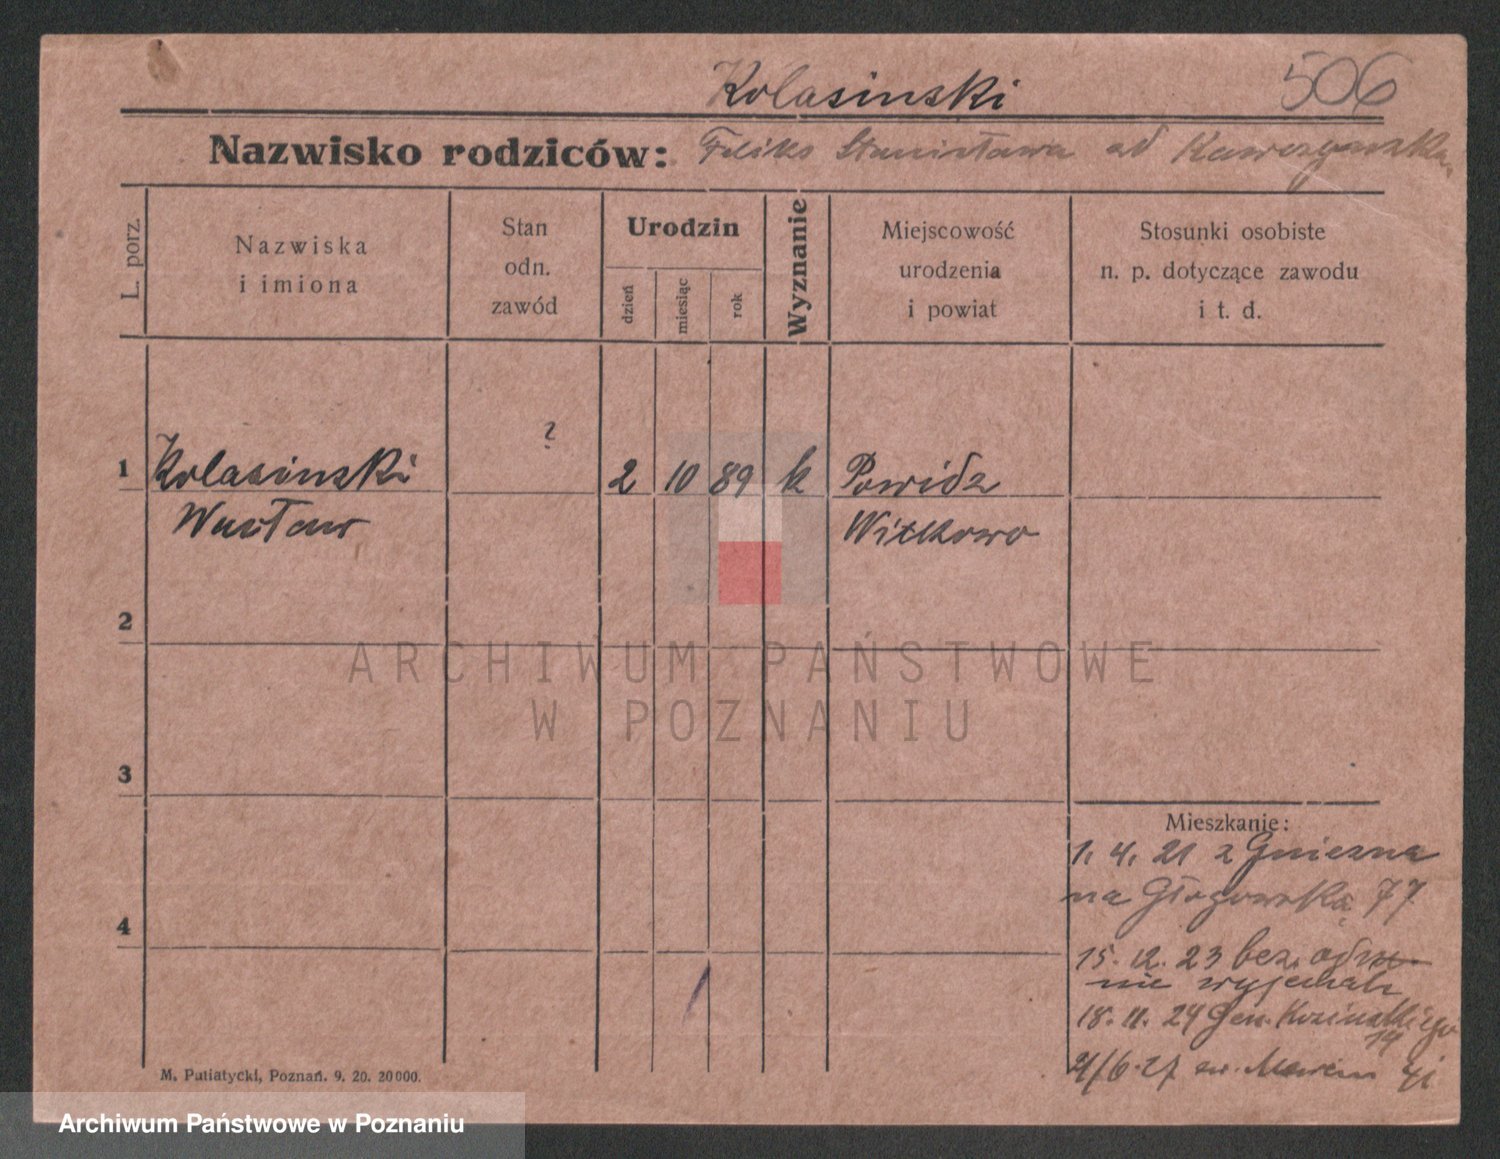 Kolasinski 506
Nazwisko rodziców: Feliks Stanisława od
L. porz.
Nazwiska
i imiona
Stan
odn.
zawód
Urodzin
dzień
miesiąc
rok
Wyznanie
Miejscowość
urodzenia
i powiat
Stosunki osobiste
n. p. dotyczące zawodu
i t. d.
?
1 Kolasinski 2 10 89 k Powidz
Wacław Witkowo
2
ARCHIWUM PAŃSTWOWE
W POZNANIU
3
Mieszkanie:
1. 4. 21 z Gniezna
na Głogowską 77
4
15. 12. 23 bez
nie wyjechał
18. 11. 24 Gen. Kosinskiego
19
6. 27 św. Marcin 41
M. Putiatycki, Poznań. 9. 20. 20000.
Archiwum Państwowe w Poznaniu